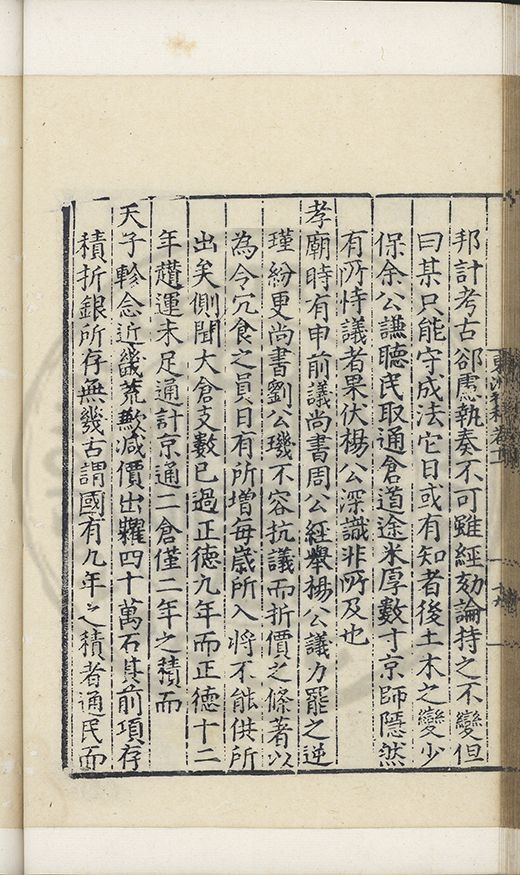 邦計考古郤慮執奏不可雖經劾論持之不變但
曰某只能守成法它日或有知者後土木之變少
保余公謙聽民取通倉道途米厚數寸京師隱然
有所恃議者果伏楊公深識非所及也
孝廟時有申前議尚書周公經舉楊公議力罷之逆
瑾紛更尚書劉公璣不容抗議而折價之條著以
為令冗食之員日有所增每歲所入將不能供所
出矣側聞大倉支數已過正德九年而正德十二
年躦運未足通計京通二倉僅二年之積而
天子軫念近畿荒歉減價出糶四十萬石其前項存
積折銀所存無幾古謂國有九年之積者通民而